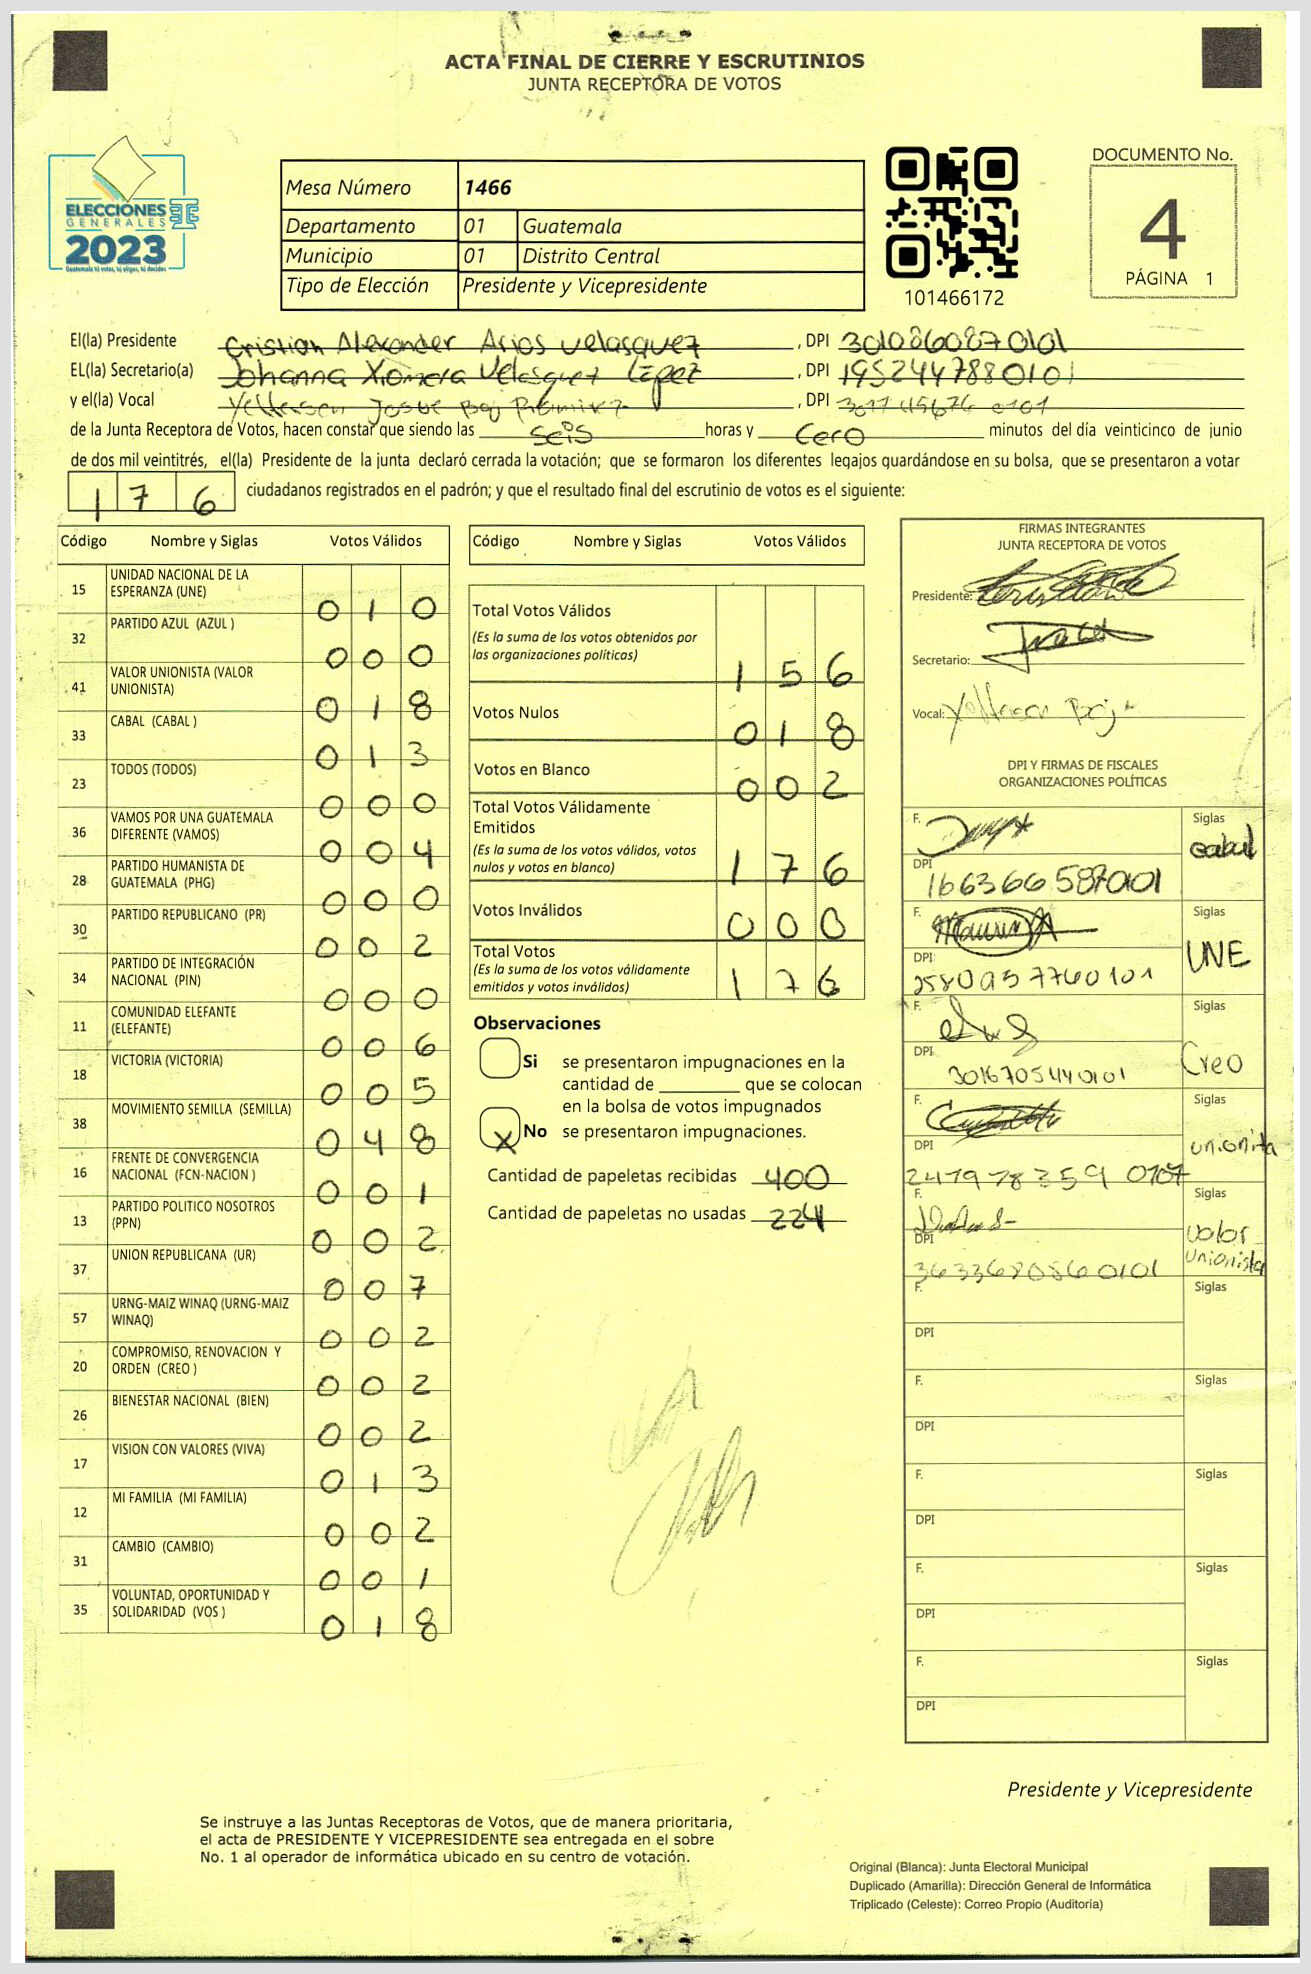 ACTA FINAL DE CIERRE Y ESCRUTINIOS
JUNTA RECEPTORA DE VOTOS
ELECCIONES
GENERALES
2023
Guatemala tú votas, tú eliges, tú decides
Mesa Número 1466
Departamento 01 Guatemala
Municipio 01 Distrito Central
Tipo de Elección Presidente y Vicepresidente
101466172
DOCUMENTO No.
4
PÁGINA 1
El(la) Presidente Cristian Alexander Arios Velasquez, DPI 3010860870101
EL(la) Secretario(a) Johanna Xiomera Velasquez López, DPI 1952447880101
y el(la) Vocal Yefferson Josue Boj Ramirez, DPI
de la Junta Receptora de Votos, hacen constar que siendo las seis horas y cero minutos del día veinticinco de junio
de dos mil veintitrés, el(la) Presidente de la junta declaró cerrada la votación; que se formaron los diferentes legajos quardándose en su bolsa, que se presentaron a votar
176 ciudadanos registrados en el padrón; y que el resultado final del escrutinio de votos es el siguiente:
Código Nombre y Siglas Votos Válidos
15 UNIDAD NACIONAL DE LA ESPERANZA (UNE) 010
32 PARTIDO AZUL (AZUL ) 000
41 VALOR UNIONISTA (VALOR UNIONISTA) 018
33 CABAL (CABAL ) 013
23 TODOS (TODOS) 000
36 VAMOS POR UNA GUATEMALA DIFERENTE (VAMOS) 004
28 PARTIDO HUMANISTA DE GUATEMALA (PHG) 000
30 PARTIDO REPUBLICANO (PR) 002
34 PARTIDO DE INTEGRACIÓN NACIONAL (PIN) 000
11 COMUNIDAD ELEFANTE (ELEFANTE) 006
18 VICTORIA (VICTORIA) 005
38 MOVIMIENTO SEMILLA (SEMILLA) 048
16 FRENTE DE CONVERGENCIA NACIONAL (FCN-NACION ) 001
13 PARTIDO POLITICO NOSOTROS (PPN) 002
37 UNION REPUBLICANA (UR) 007
57 URNG-MAIZ WINAQ (URNG-MAIZ WINAQ) 002
20 COMPROMISO, RENOVACION Y ORDEN (CREO ) 002
26 BIENESTAR NACIONAL (BIEN) 002
17 VISION CON VALORES (VIVA) 013
12 MI FAMILIA (MI FAMILIA) 002
31 CAMBIO (CAMBIO) 001
35 VOLUNTAD, OPORTUNIDAD Y SOLIDARIDAD (VOS ) 018
Código Nombre y Siglas Votos Válidos
Total Votos Válidos
(Es la suma de los votos obtenidos por
las organizaciones políticas) 156
Votos Nulos 018
Votos en Blanco 002
Total Votos Válidamente
Emitidos
(Es la suma de los votos válidos, votos
nulos y votos en blanco) 176
Votos Inválidos 000
Total Votos
(Es la suma de los votos válidamente
emitidos y votos inválidos) 176
Observaciones
Si se presentaron impugnaciones en la
cantidad de ________ que se colocan
en la bolsa de votos impugnados
X No se presentaron impugnaciones.
Cantidad de papeletas recibidas 400
Cantidad de papeletas no usadas 224
FIRMAS INTEGRANTES
JUNTA RECEPTORA DE VOTOS
Presidente:
Secretario:
Vocal: Yefferson Boj
DPI Y FIRMAS DE FISCALES
ORGANIZACIONES POLÍTICAS
F. Siglas cabal
DPI 16636665870101
F. Siglas UNE
DPI 2580937760101
F. Siglas Creo
DPI 3016705440101
F. Siglas unionita
DPI
F. Siglas valor unionista
DPI 3633680860101
F. Siglas
DPI
F. Siglas
DPI
F. Siglas
DPI
F. Siglas
DPI
F. Siglas
DPI
Presidente y Vicepresidente
Se instruye a las Juntas Receptoras de Votos, que de manera prioritaria,
el acta de PRESIDENTE Y VICEPRESIDENTE sea entregada en el sobre
No. 1 al operador de informática ubicado en su centro de votación.
Original (Blanca): Junta Electoral Municipal
Duplicado (Amarilla): Dirección General de Informática
Triplicado (Celeste): Correo Propio (Auditoría)